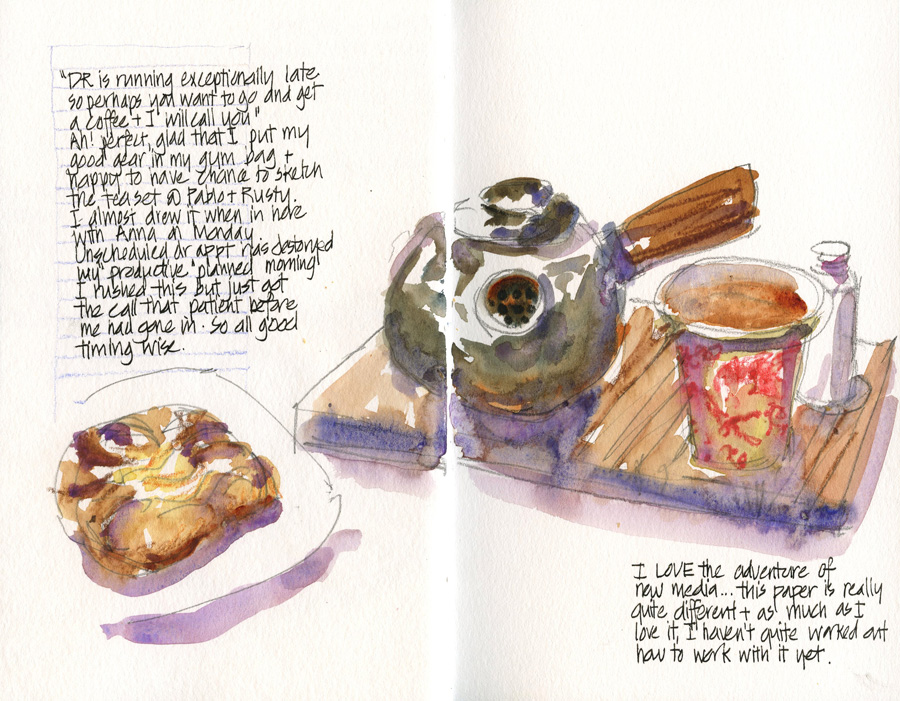 "DR is running exceptionally late
so perhaps you want to go and get
a coffee + I will call you"
Ah! perfect, glad that I put my
good gear in my gum bag +
happy to have chance to sketch
the tea set @ Pablo + Rusty.
I almost drew it when in here
with Anna on Monday.
Unscheduled dr appt has destroyed
my 'productive' planned morning!
I rushed this but just got
the call that patient before
me had gone in. So all good
timing wise.
I LOVE the adventure of
new media... this paper is really
quite different + as much as I
love it, I haven't quite worked out
how to work with it yet.